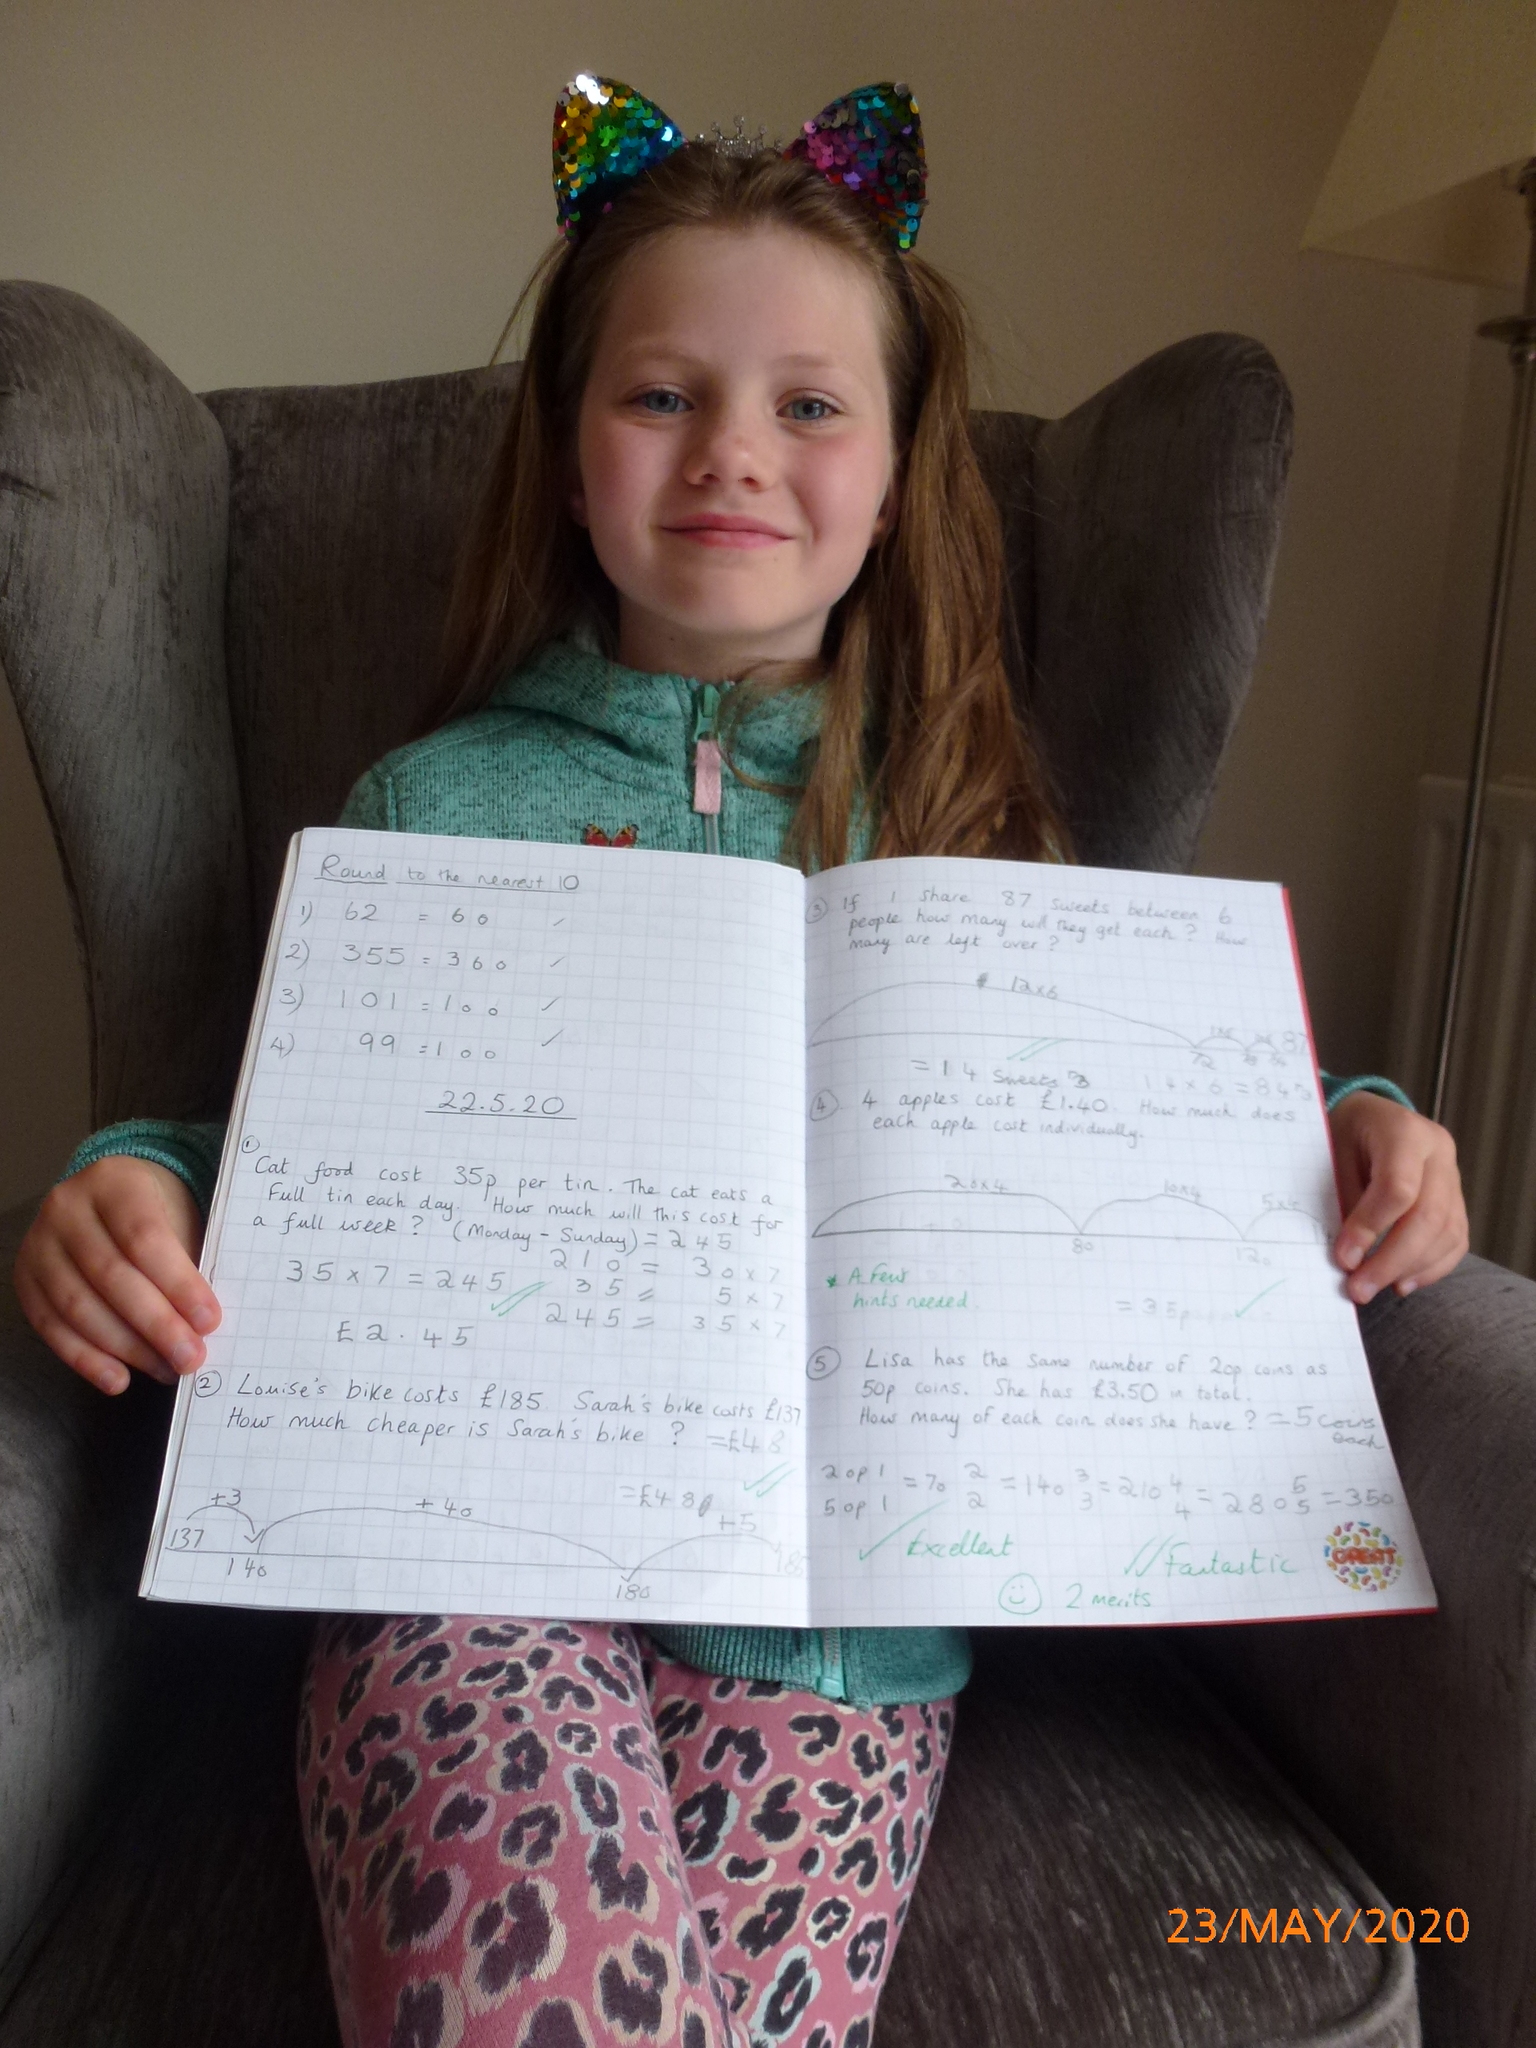 Round to the nearest 10
1) 62 = 60 ✓
2) 355 = 360 ✓
3) 101 = 100 ✓
4) 99 = 100 ✓
22.5.20
① Cat food cost 35p per tin. The cat eats a
full tin each day. How much will this cost for
a full week? (Monday - Sunday) = 245
35 x 7 = 245
£2.45
210 = 30 x 7
35 = 5 x 7
245 = 35 x 7
② Louise's bike costs £185. Sarah's bike costs £137
How much cheaper is Sarah's bike? = £48
= £48
+3 +40 +5
137 140 180 185
③ If I share 87 sweets between 6
people how many will they get each? How
many are left over?
12x6
72
87
= 14 sweets r3
14 x 6 = 84 r3
④ 4 apples cost £1.40. How much does
each apple cost individually.
20x4 10x4 5x4
80 120
* A few
hints needed.
= 35p ✓
⑤ Lisa has the same number of 20p coins as
50p coins. She has £3.50 in total.
How many of each coin does she have? = 5 coins
each
20p 1 = 70 2 = 140 3 = 210 4 = 280 5 = 350
50p 1 2 3 4 5
✓ Excellent
✓✓ Fantastic
2 merits
GREAT
23/MAY/2020